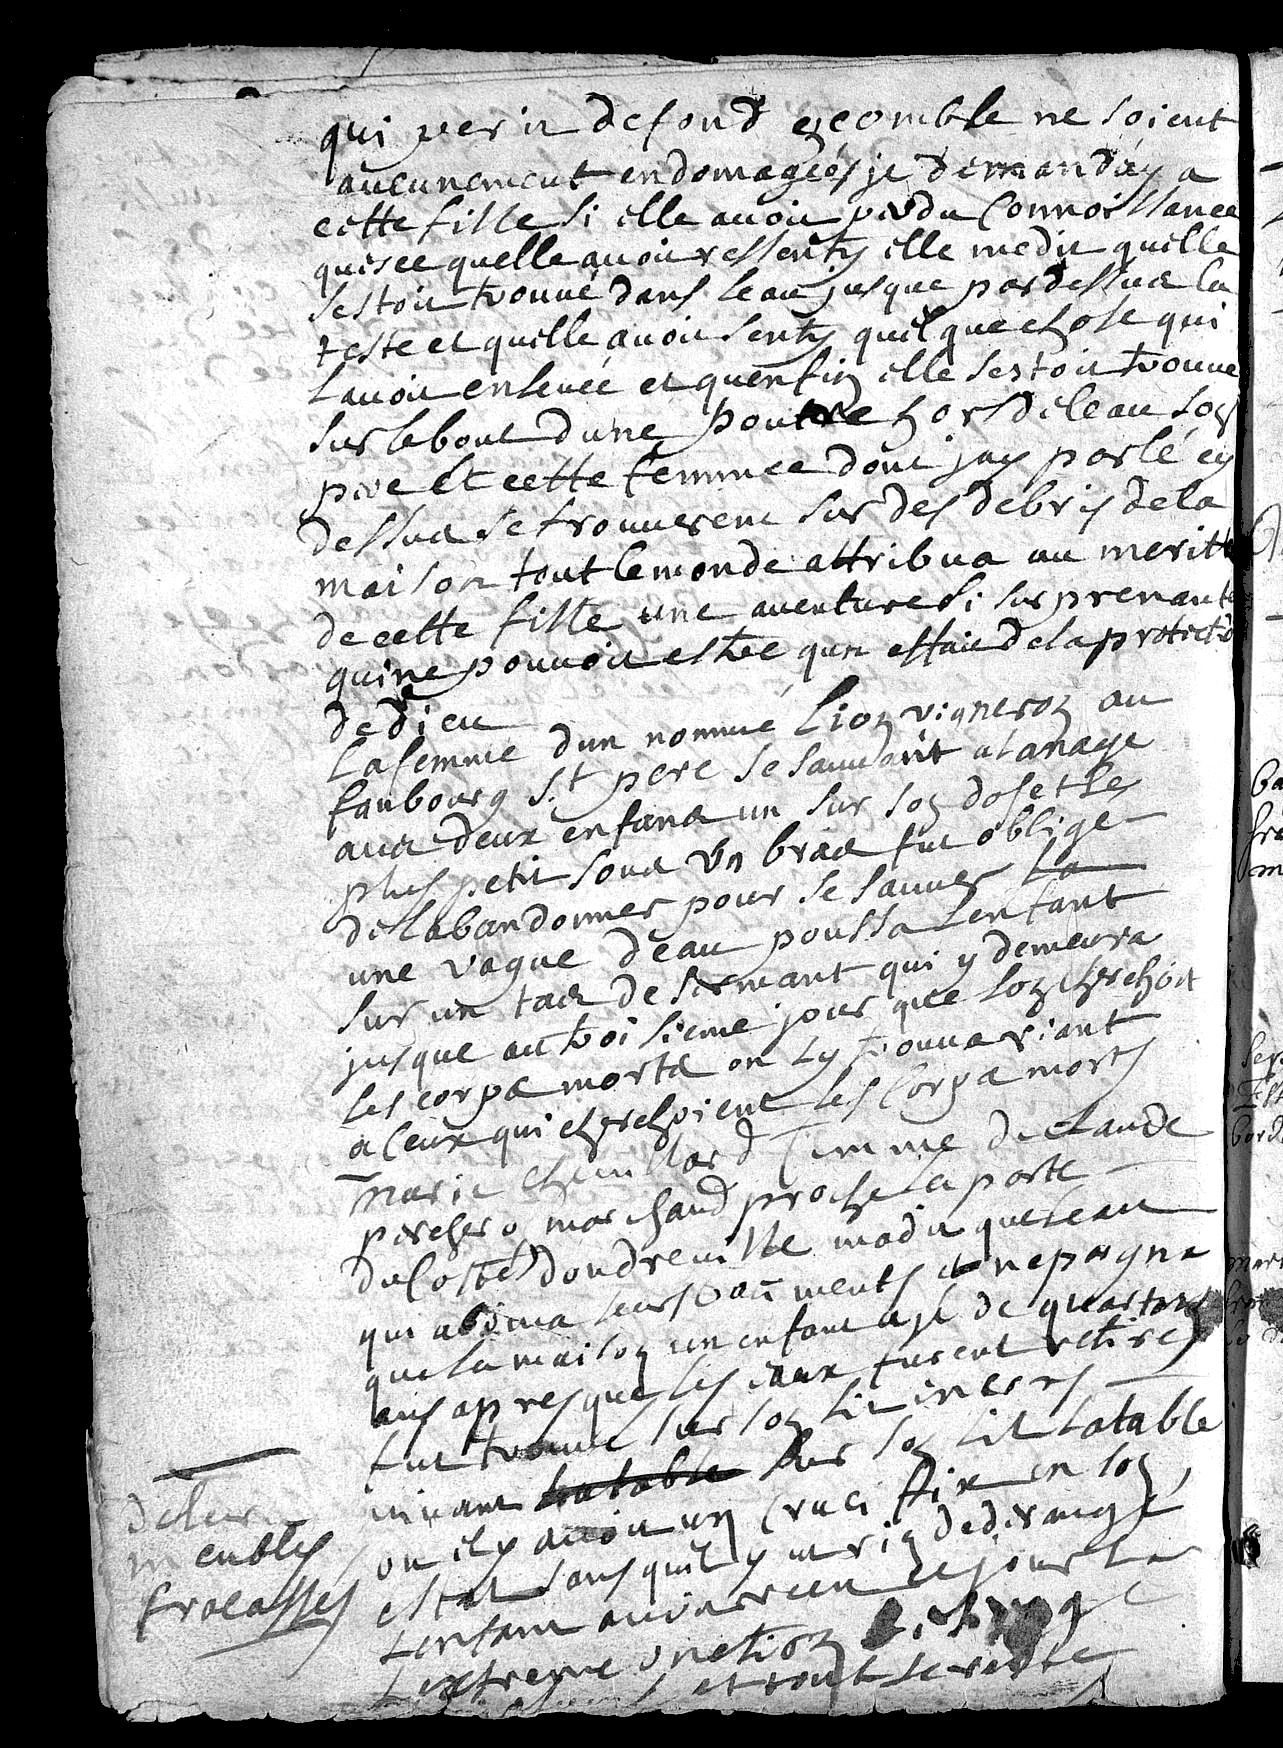 qui perit de fond en comble ne soient
aucunement endomagées je demanday a
cette fille si elle avoit perdu Connoissance
quesce quelle avoit ressenty elle me dit quelle
sestoit trouvé dans leau jusque par dessus la
teste et quelle avoit senty quelque chose qui
lavoit enlevée et quenfin elle sestoit trouve
sur le bout dune poutre hors de leau son
pere Et cette femme dont jay parlé cy
dessus se trouverent sur des debris de la
maison tout le monde attribua au meritte
de cette fille une aventure si surprenante
qui ne pouvoit estre qun effait de la protectio
de dieu
La femme dun nommé Lion vigneron au
faubourg St pere se sauvant a la nage
avec deux enfans un sur son dos et le
plus petit sous un bras fut oblige
de labandonner pour se sauver
une vague deau poussa Lenfant
sur un tas de serment qui y demeura
jusque au troisieme jour que lon cherchoit
les corps morts on ly trouva riant
a Ceux qui cherchoient les Corps morts
Marie femme de Claude
marchand proche la porte
du Costé dondreville ma dit que leau
qui abima leurs batiments et nepargna
que la maison un enfant agé de quatorze
ans apres que les eaux furent retirés
fut trouvé sur son lit
vivant sur son lit la table
ou il y avoit un Crucifix en son
estat sans quil y ut rien de derangé
Lenfant avoit receu ce jour La
Lextreme onction
et tout le reste
de leurs
meubles
fracassés